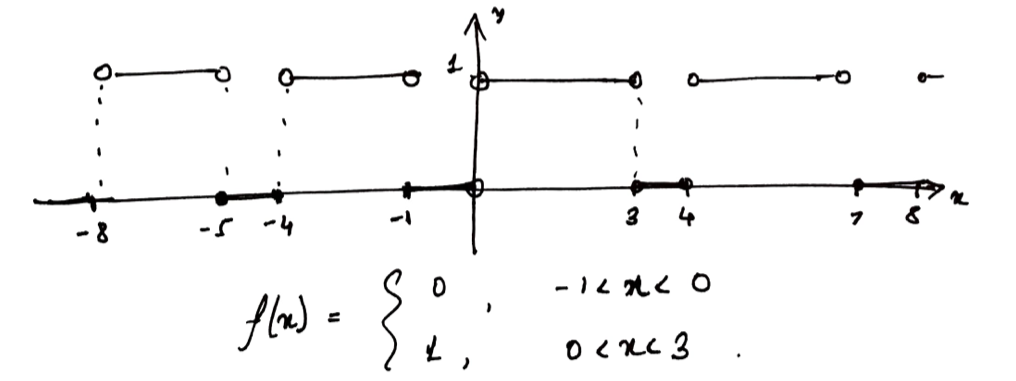 y
1
-8 -5 -4 -1 3 4 7 8 x
f(x) = { 0 , -1 < x < 0
1 , 0 < x < 3 .